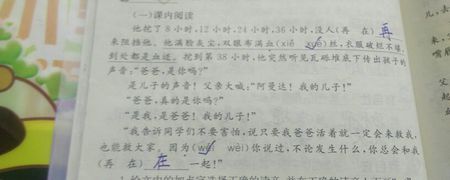 (一)课内阅读
他挖了8小时,12小时,24小时,36小时,没人(再 在)再
来阻挡他。他满脸灰尘,双眼布满血(xiě xuè)丝,衣服破烂不堪,
到处都是血迹。挖到第38小时,他突然听见瓦砾堆底下传出孩子的
声音:“爸爸,是你吗?”
是儿子的声音!父亲大喊:“阿曼达!我的儿子!”
“爸爸,真的是你吗?”
“是我,是爸爸!我的儿子!”
“我告诉同学们不要害怕,说只要我爸爸活着就一定会来救我,
也能救大家。因为(wéi wèi)你说过,不论发生什么,你总会和我
(再 在)在一起!”